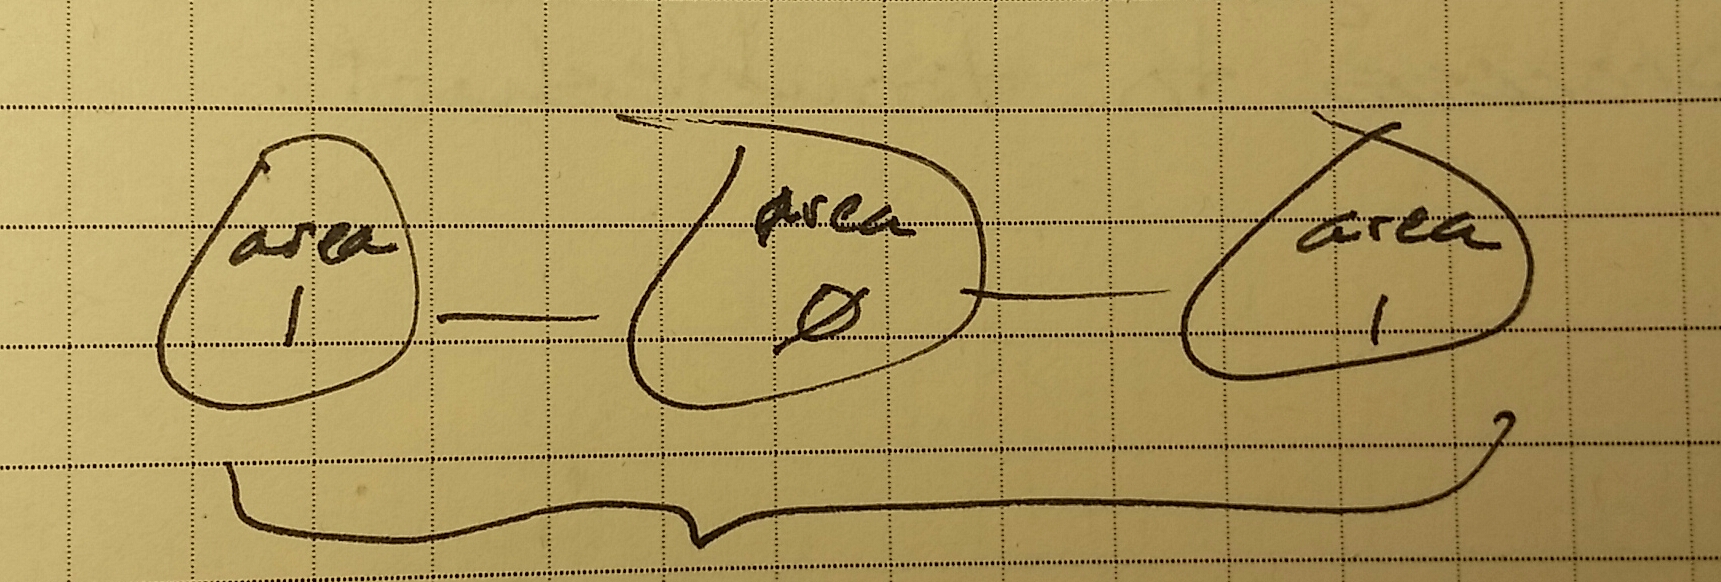 area
1
area
Ø
area
1